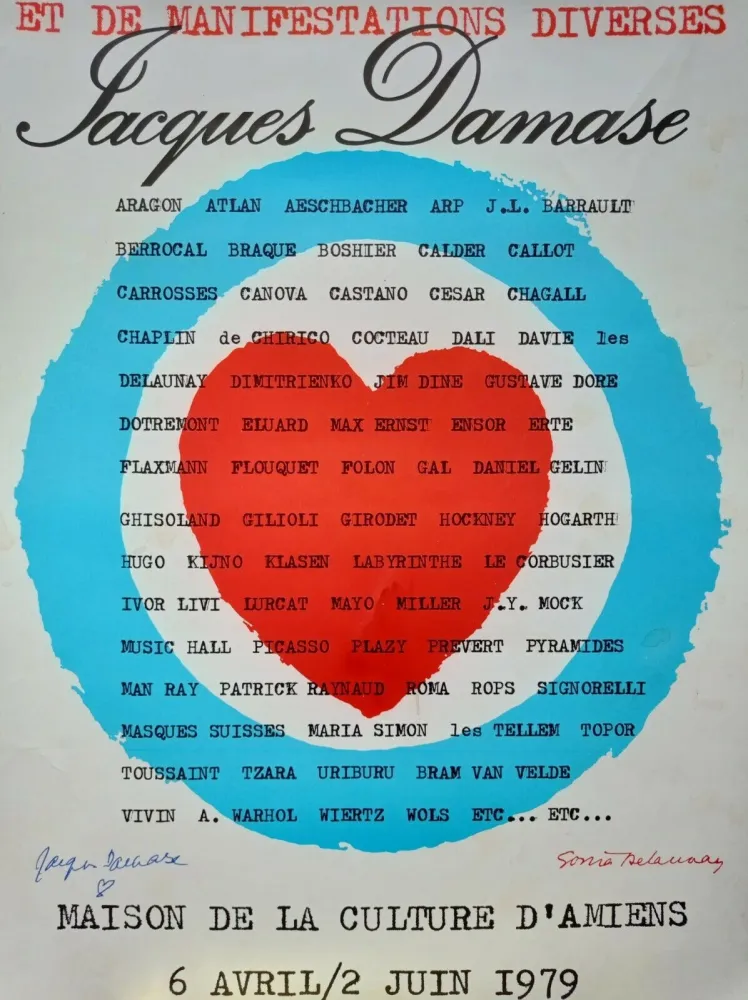 ET DE MANIFESTATIONS DIVERSES
Jacques Damase
ARAGON ATLAN AESCHBACHER ARP J.L. BARRAULT
BERROCAL BRAQUE BOSHIER CALDER CALLOT
CARROSSES CANOVA CASTANO CESAR CHAGALL
CHAPLIN de CHIRICO COCTEAU DALI DAVIE les
DELAUNAY DIMITRIENKO JIM DINE GUSTAVE DORE
DOTREMONT ELUARD MAX ERNST ENSOR ERTE
FLAXMANN FLOUQUET FOLON GAL DANIEL GELIN
GHISOLAND GILIOLI GIRODET HOCKNEY HOGARTH
HUGO KIJNO KLASEN LABYRINTHE LE CORBUSIER
IVOR LIVI LURCAT MAYO MILLER J.Y. MOCK
MUSIC HALL PICASSO PLAZY PREVERT PYRAMIDES
MAN RAY PATRICK RAYNAUD ROMA ROPS SIGNORELLI
MASQUES SUISSES MARIA SIMON les TELLEM TOPOR
TOUSSAINT TZARA URIBURU BRAM VAN VELDE
VIVIN A. WARHOL WIERTZ WOLS ETC... ETC...
Jacques Damase
Sonia Delaunay
MAISON DE LA CULTURE D'AMIENS
6 AVRIL/2 JUIN 1979